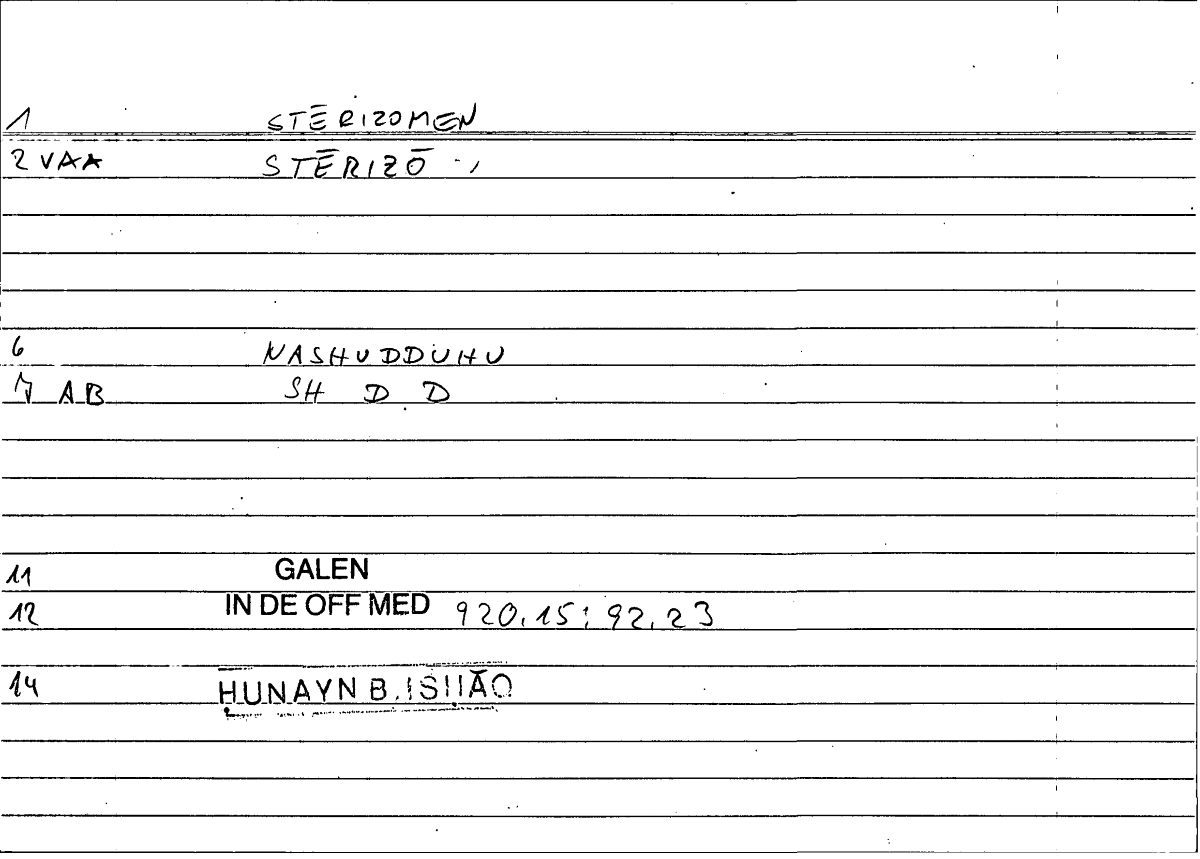 1 STĒRIZOMEN
2 VAA STĒRIZŌ
6 NASHUDDUHU
7 AB SH D D
11 GALEN
12 IN DE OFF MED 920.15; 92.23
14 HUNAYN B. ISḤĀQ